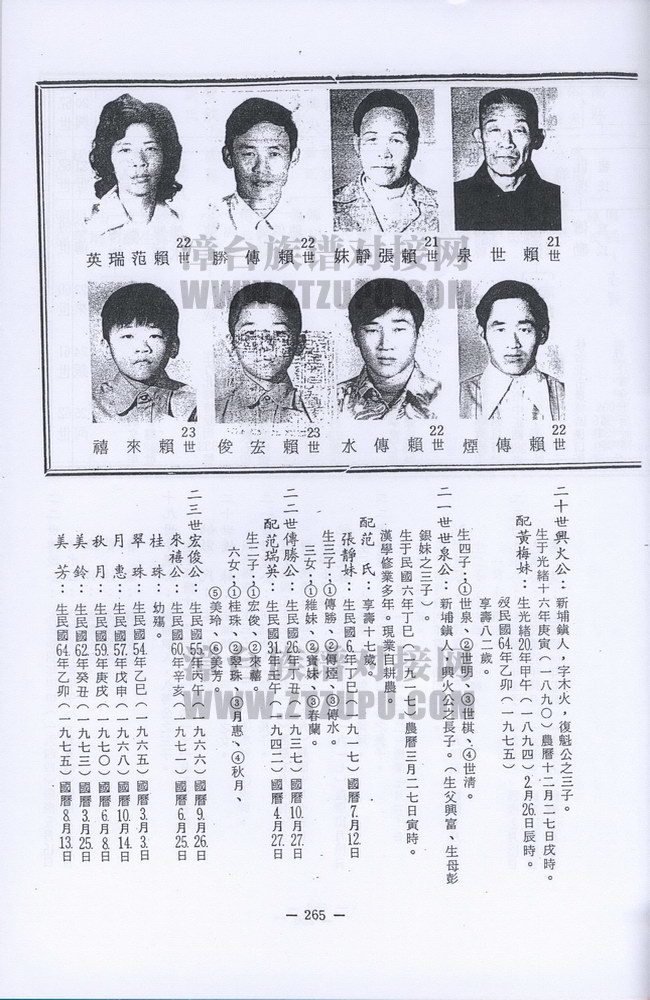 21世 賴世泉
21世 賴張靜妹
22世 賴傳勝
22世 賴范瑞英
22世 賴傳煙
22世 賴傳水
23世 賴宏俊
23世 賴來禧
漳台族谱对接网
WWW.ZTZUPU.COM
二十世興火公：新埔鎮人，字木火，復魁公之三子。
生于光緒十六年庚寅（一八九〇）農曆十二月二七日戌時。
配黃梅妹：生光緒20年甲午（一八九四）2月26日辰時。
歿民國64年乙卯（一九七五）
享壽八二歲。
生四子：①世泉、②世明、③世棋、④世清。
二一世世泉公：新埔鎮人，興火公之長子。（生父興富、生母彭
銀妹之三子）。
生于民國六年丁巳（一九一七）農曆三月二七日寅時。
漢學修業多年。現業自耕農
配范　氏：享壽十七歲。
張靜妹：生民國6年丁巳（一九一七）國曆7月12日
生三子：①傳勝、②傳煙、③傳水。
三女：①維妹、②寶妹、③春蘭。
二二世傳勝公：生民國26年丁丑（一九三七）國曆10月27日
配范瑞英：生民國31年壬午（一九四二）國曆4月27日
生二子：①宏俊、②來禧。
六女：①桂珠、②翠珠、③月惠、④秋月、
⑤美玲、⑥美芳。
二三世宏俊公：生民國55年丙午（一九六六）國曆9月26日
來禧公：生民國60年辛亥（一九七一）國曆6月25日
桂　珠：幼殤。
翠　珠：生民國54年乙巳（一九六五）國曆3月3日
月　惠：生民國57年戊申（一九六八）國曆10月14日
秋　月：生民國59年庚戌（一九七〇）國曆6月8日
美　鈴：生民國62年癸丑（一九七三）國曆3月25日
美　芳：生民國64年乙卯（一九七五）國曆8月13日
漳台族谱对接网
WWW.ZTZUPU.COM
— 265 —